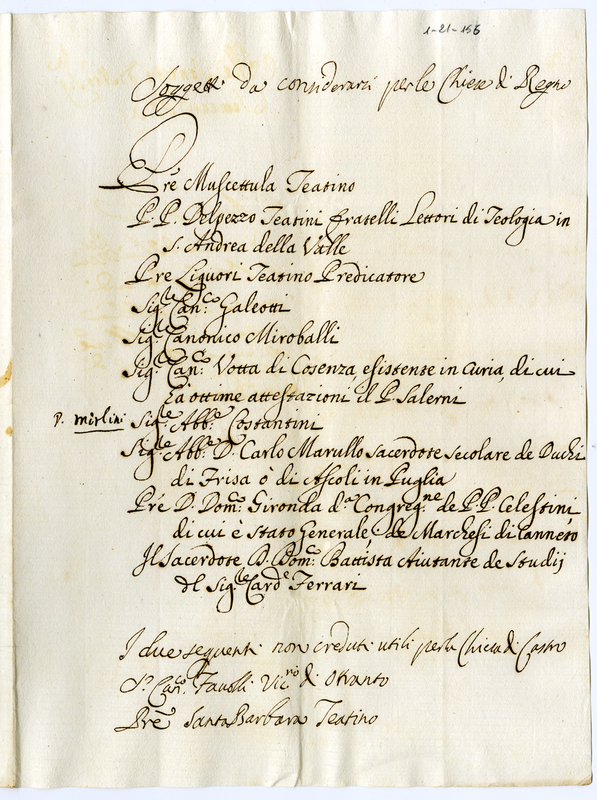 1-21-156
Soggetti da considerarsi per le Chiese di Regno
Pre Muscettula Teatino
P. P. Delpezzo Teatini fratelli Lettori di Teologia in
S. Andrea della Valle
Pre Liquori Teatino Predicatore
Sig.le Can.co Galeotti
Sig.le Canonico Miroballi
Sig.le Can.co Votta di Cosenza, esistente in Curia, di cui
hà ottime attestazioni il P. Salerni
P. Mirlini Sig.le Abb.e Costantini
Sig.le Abb.e D. Carlo Marullo sacerdote secolare de Duchi
di Frisa ò di Ascoli in Puglia
Pré D. Dom.co Gironda d.a Congreg.ne de P.P. Celestini
di cui è stato Generale, de Marchesi di Canneto
Il Sacerdote D. Dom.co Battista Aiutante de Studij
del Sig.le Card.e Ferrari
I due seguenti non creduti utili per la Chiesa di Castro
S.r Can.co Vic.rio di Otranto
Pré Santa Barbara Teatino